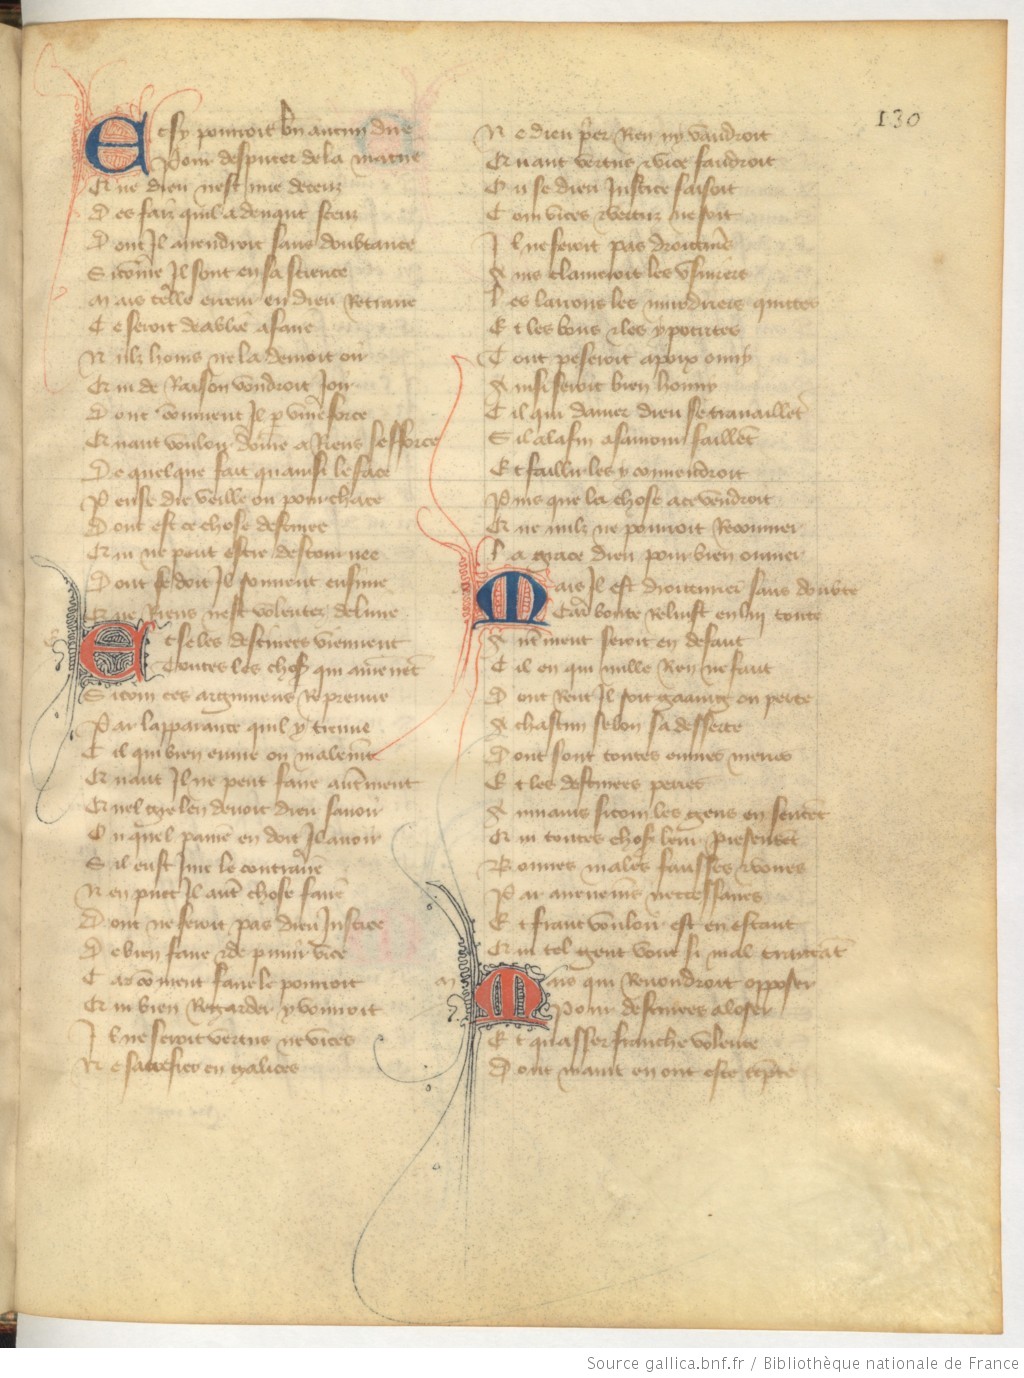 130
Et sy pourroit bn aucun dire
Pour desputer de la matire
Que dieu nest mie deceuz
Des faiz quil a devant sceuz
Dont Il avendroit sans doubtance
Sicome Il sont en sa science
Mais telle erreur en dieu Retraire
Ce seroit deablie a faire
Nulz homs ne la devroit oir
Qui de Raison vondroit Joir
Dont convient Il p vive force
Quant voulour dome a Riens sefforce
De quelque fait quainsi le face
Pense die veille ou pourchace
Dont est ce chose destinee
Qui ne peut estre destournee
Dont se doit Il souvent ensuivre
Que Riens nest volenter delivre
Et se les destinees tiennent
Toutes les chos qui aviennēt
Si com ces argumens Reprenve
Par lapparance quil y treuve
Cil qui bien euvre ou malemt
Quant Il ne peut faire autment
Quel gre len devroit dieu savoir
Ou quel paine en doit Il avoir
Sil eust Jure le contraire
Nen puet Il autre chose faire
Dont ne seroit pas dieu Justice
De bien faire et de punir vice
Car cōment faire le pourroit
Qui bien Regarder y vouroit
Il ne seroit vertus ne vices
Ne sacrefier en galices
Ne dieu prier Rien ny vaudroit
Quant vertus et vice faudroit
Ou se dieu Justice faisoit
Com vices et vertuz ne soit
Il ne seroit pas droituriers
Ains clameroit les usuriers
Les larrons les murdriers quittes
Et les bons et les ypocrites
Tout peseroit a poix onny
Ainsi seroit bien honny
Cil qui damer dieu se travaillent
Sil a la fin a samour faillent
Et faillir les y convendroit
Puis que la chose ace vendroit
Que nulz ne pourroit Recouvrer
La grace dieu pour bien ouvrer
Mais Il est droiturier sans doubte
Car bonte Reluist en lui toute
Autrement seroit en defaut
Cil en qui nulle Rien ne faut
Dont Rent Il soit gaaing ou perte
A chascun selon sa desserte
Dont sont toutes euvres meries
Et les destinees peries
Au mains sicom les gens en sentēt
Qui toutes chos leur presentēt
Bonnes males fausses et voires
Par avenemens neccessaires
Et franc vouloir est en estant
Que tel gent vont si mal traictāt
m
Mais qui Revondroit opposer
Pour destinees aloser
Et quasser franche volente
Dont maint en ont este tēpte
Source gallica.bnf.fr / Bibliothèque nationale de France